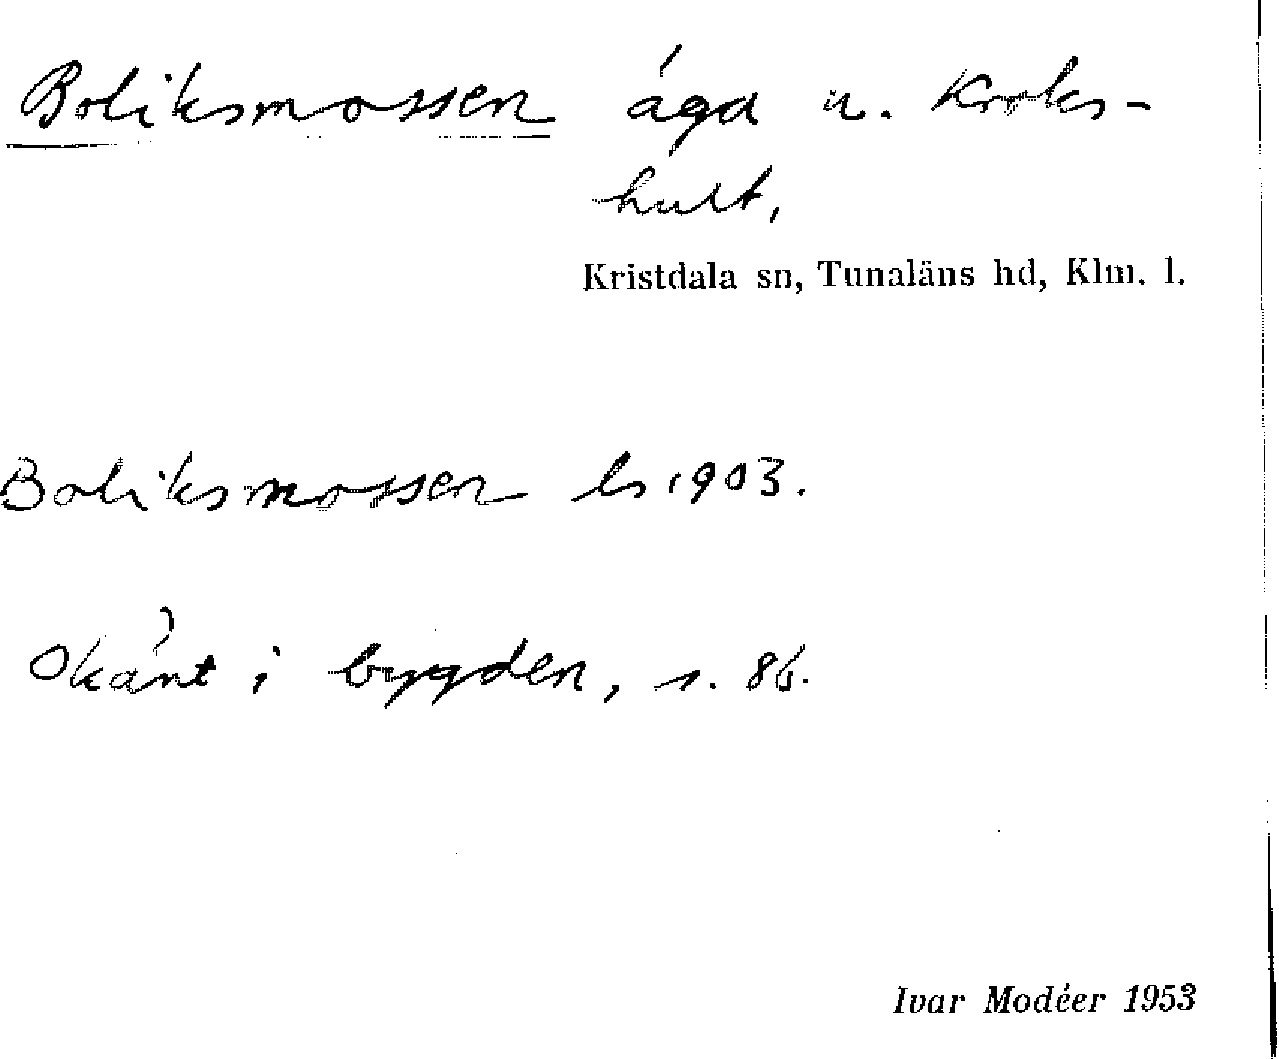 Boliksmossen ägd u. Kroks-
hult,
Kristdala sn, Tunaläns hd, Klm. l.
Boliksmossen ls 1903.
Okänt i bygden, s. 86.
Ivar Modéer 1953